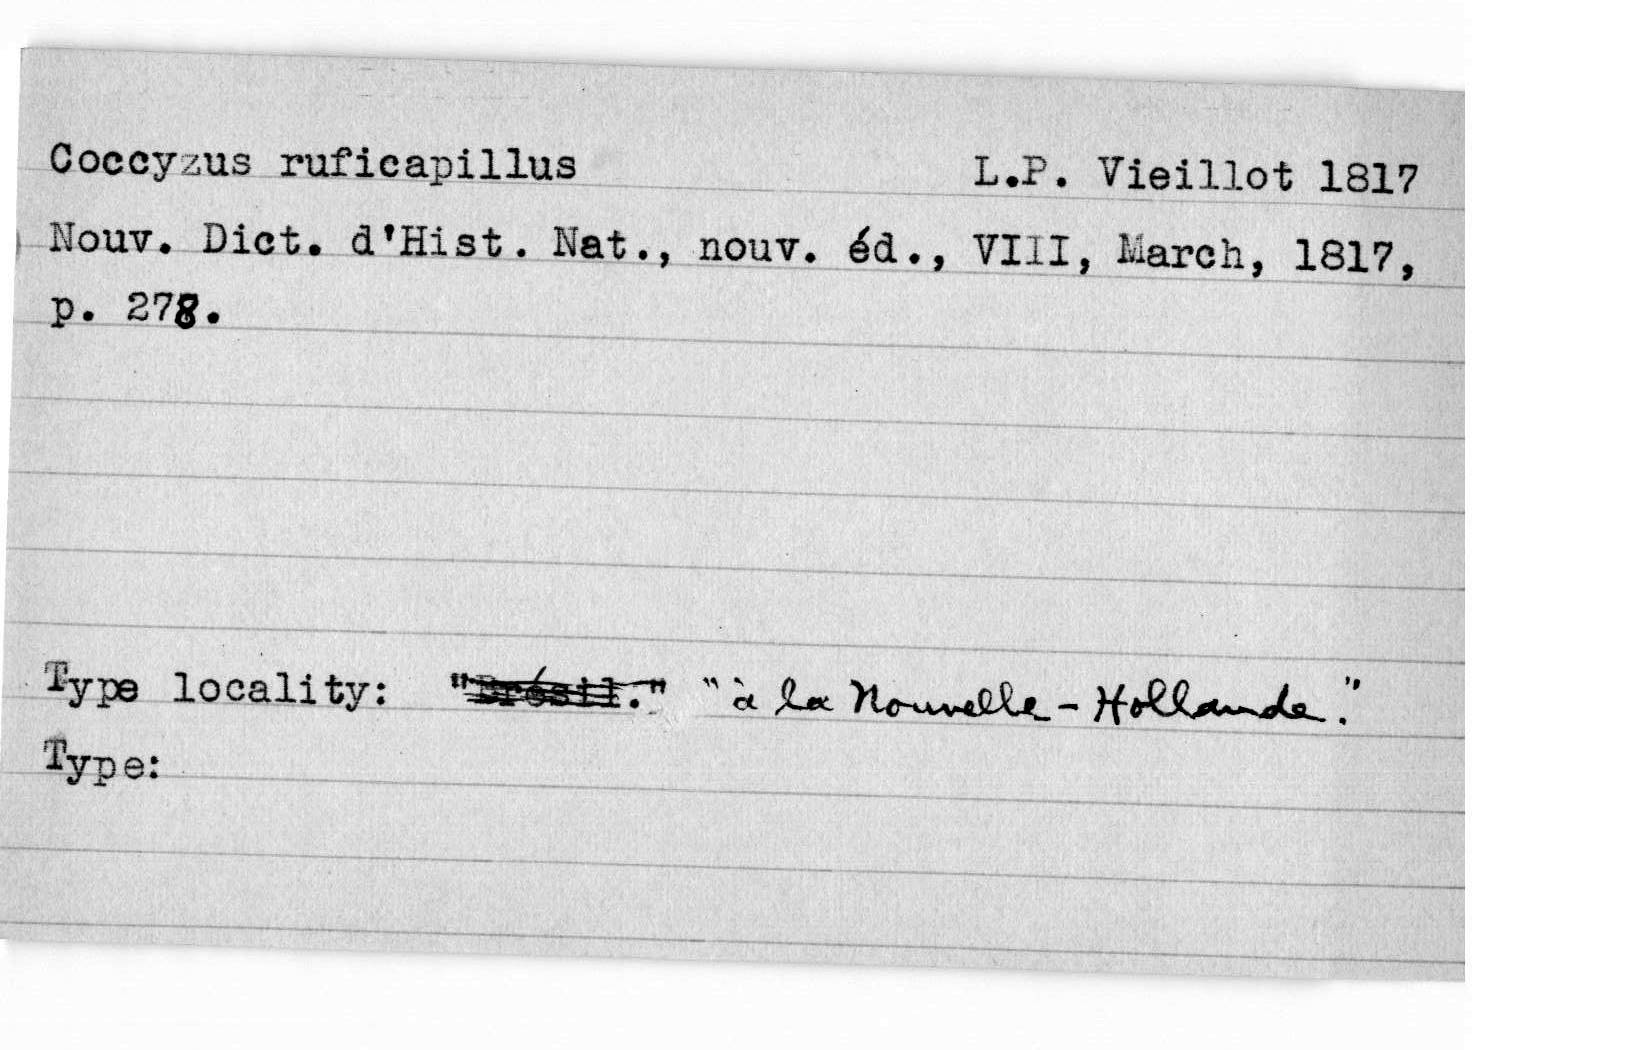 Coccyzus ruficapillus L.P. Vieillot 1817
Nouv. Dict. d'Hist. Nat., nouv. éd., VIII, March, 1817,
p. 278.
Type locality: "Brésil." "à la Nouvelle-Hollande."
Type: